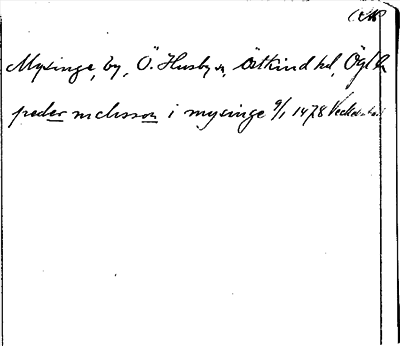 Mysinge, by, Ö. Husby sn, Östkind hd, Ögl
peder niclisson i mysinge 9/1 1478